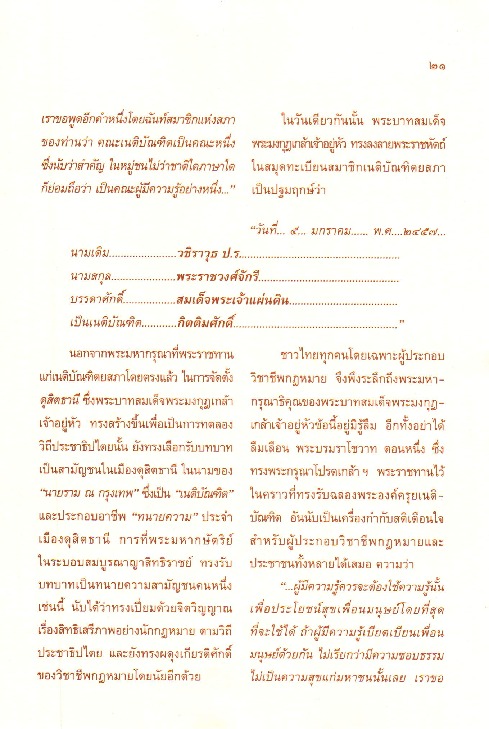 ๒๑
เราขอพูดอีกคำหนึ่งโดยฉันท์สมาชิกแห่งสภา
ของท่านว่า คณะเนติบัณฑิตเป็นคณะหนึ่ง
ซึ่งนับว่าสำคัญ ในหมู่ชนไม่ว่าชาติใดภาษาใด
ก็ย่อมถือว่า เป็นคณะผู้มีความรู้อย่างหนึ่ง..."
ในวันเดียวกันนั้น พระบาทสมเด็จ
พระมงกุฎเกล้าเจ้าอยู่หัว ทรงลงลายพระราชหัตถ์
ในสมุดทะเบียนสมาชิกเนติบัณฑิตยสภา
เป็นปฐมฤกษ์ว่า
"วันที่... ๙... มกราคม...... พ.ศ....๒๔๕๗...
นามเดิม.......................วชิราวุธ ป.ร.......................................
นามสกุล......................พระราชวงศ์จักรี...................................
บรรดาศักดิ์..................สมเด็จพระเจ้าแผ่นดิน...........................
เป็นเนติบัณฑิต...........กิตติมศักดิ์........................................."
นอกจากพระมหากรุณาที่พระราชทาน
แก่เนติบัณฑิตยสภาโดยตรงแล้ว ในการจัดตั้ง
ดุสิตธานี ซึ่งพระบาทสมเด็จพระมงกุฎเกล้า
เจ้าอยู่หัว ทรงสร้างขึ้นเพื่อเป็นการทดลอง
วิถีประชาธิปไตยนั้น ยังทรงเลือกรับบทบาท
เป็นสามัญชนในเมืองดุสิตธานี ในนามของ
"นายราม ณ กรุงเทพ" ซึ่งเป็น "เนติบัณฑิต"
และประกอบอาชีพ "ทนายความ" ประจำ
เมืองดุสิตธานี การที่พระมหากษัตริย์
ในระบอบสมบูรณาญาสิทธิราชย์ ทรงรับ
บทบาทเป็นทนายความสามัญชนคนหนึ่ง
เช่นนี้ นับได้ว่าทรงเปี่ยมด้วยจิตวิญญาณ
เรื่องสิทธิเสรีภาพอย่างนักกฎหมาย ตามวิถี
ประชาธิปไตย และยังทรงผดุงเกียรติศักดิ์
ของวิชาชีพกฎหมายโดยนัยอีกด้วย
ชาวไทยทุกคนโดยเฉพาะผู้ประกอบ
วิชาชีพกฎหมาย จึงพึงระลึกถึงพระมหา-
กรุณาธิคุณของพระบาทสมเด็จพระมงกุฎ-
เกล้าเจ้าอยู่หัวข้อนี้อยู่มิรู้ลืม อีกทั้งอย่าได้
ลืมเลือน พระบรมราโชวาท ตอนหนึ่ง ซึ่ง
ทรงพระกรุณาโปรดเกล้าฯ พระราชทานไว้
ในคราวที่ทรงรับฉลองพระองค์ครุยเนติ-
บัณฑิต อันนับเป็นเครื่องกำกับสติเตือนใจ
สำหรับผู้ประกอบวิชาชีพกฎหมายและ
ประชาชนทั้งหลายได้เสมอ ความว่า
"...ผู้มีความรู้ควรจะต้องใช้ความรู้นั้น
เพื่อประโยชน์สุขเพื่อนมนุษย์โดยที่สุด
ที่จะใช้ได้ ถ้าผู้มีความรู้เบียดเบียนเพื่อน
มนุษย์ด้วยกัน ไม่เรียกว่ามีความชอบธรรม
ไม่เป็นความสุขแก่มหาชนนั้นเลย เราขอ